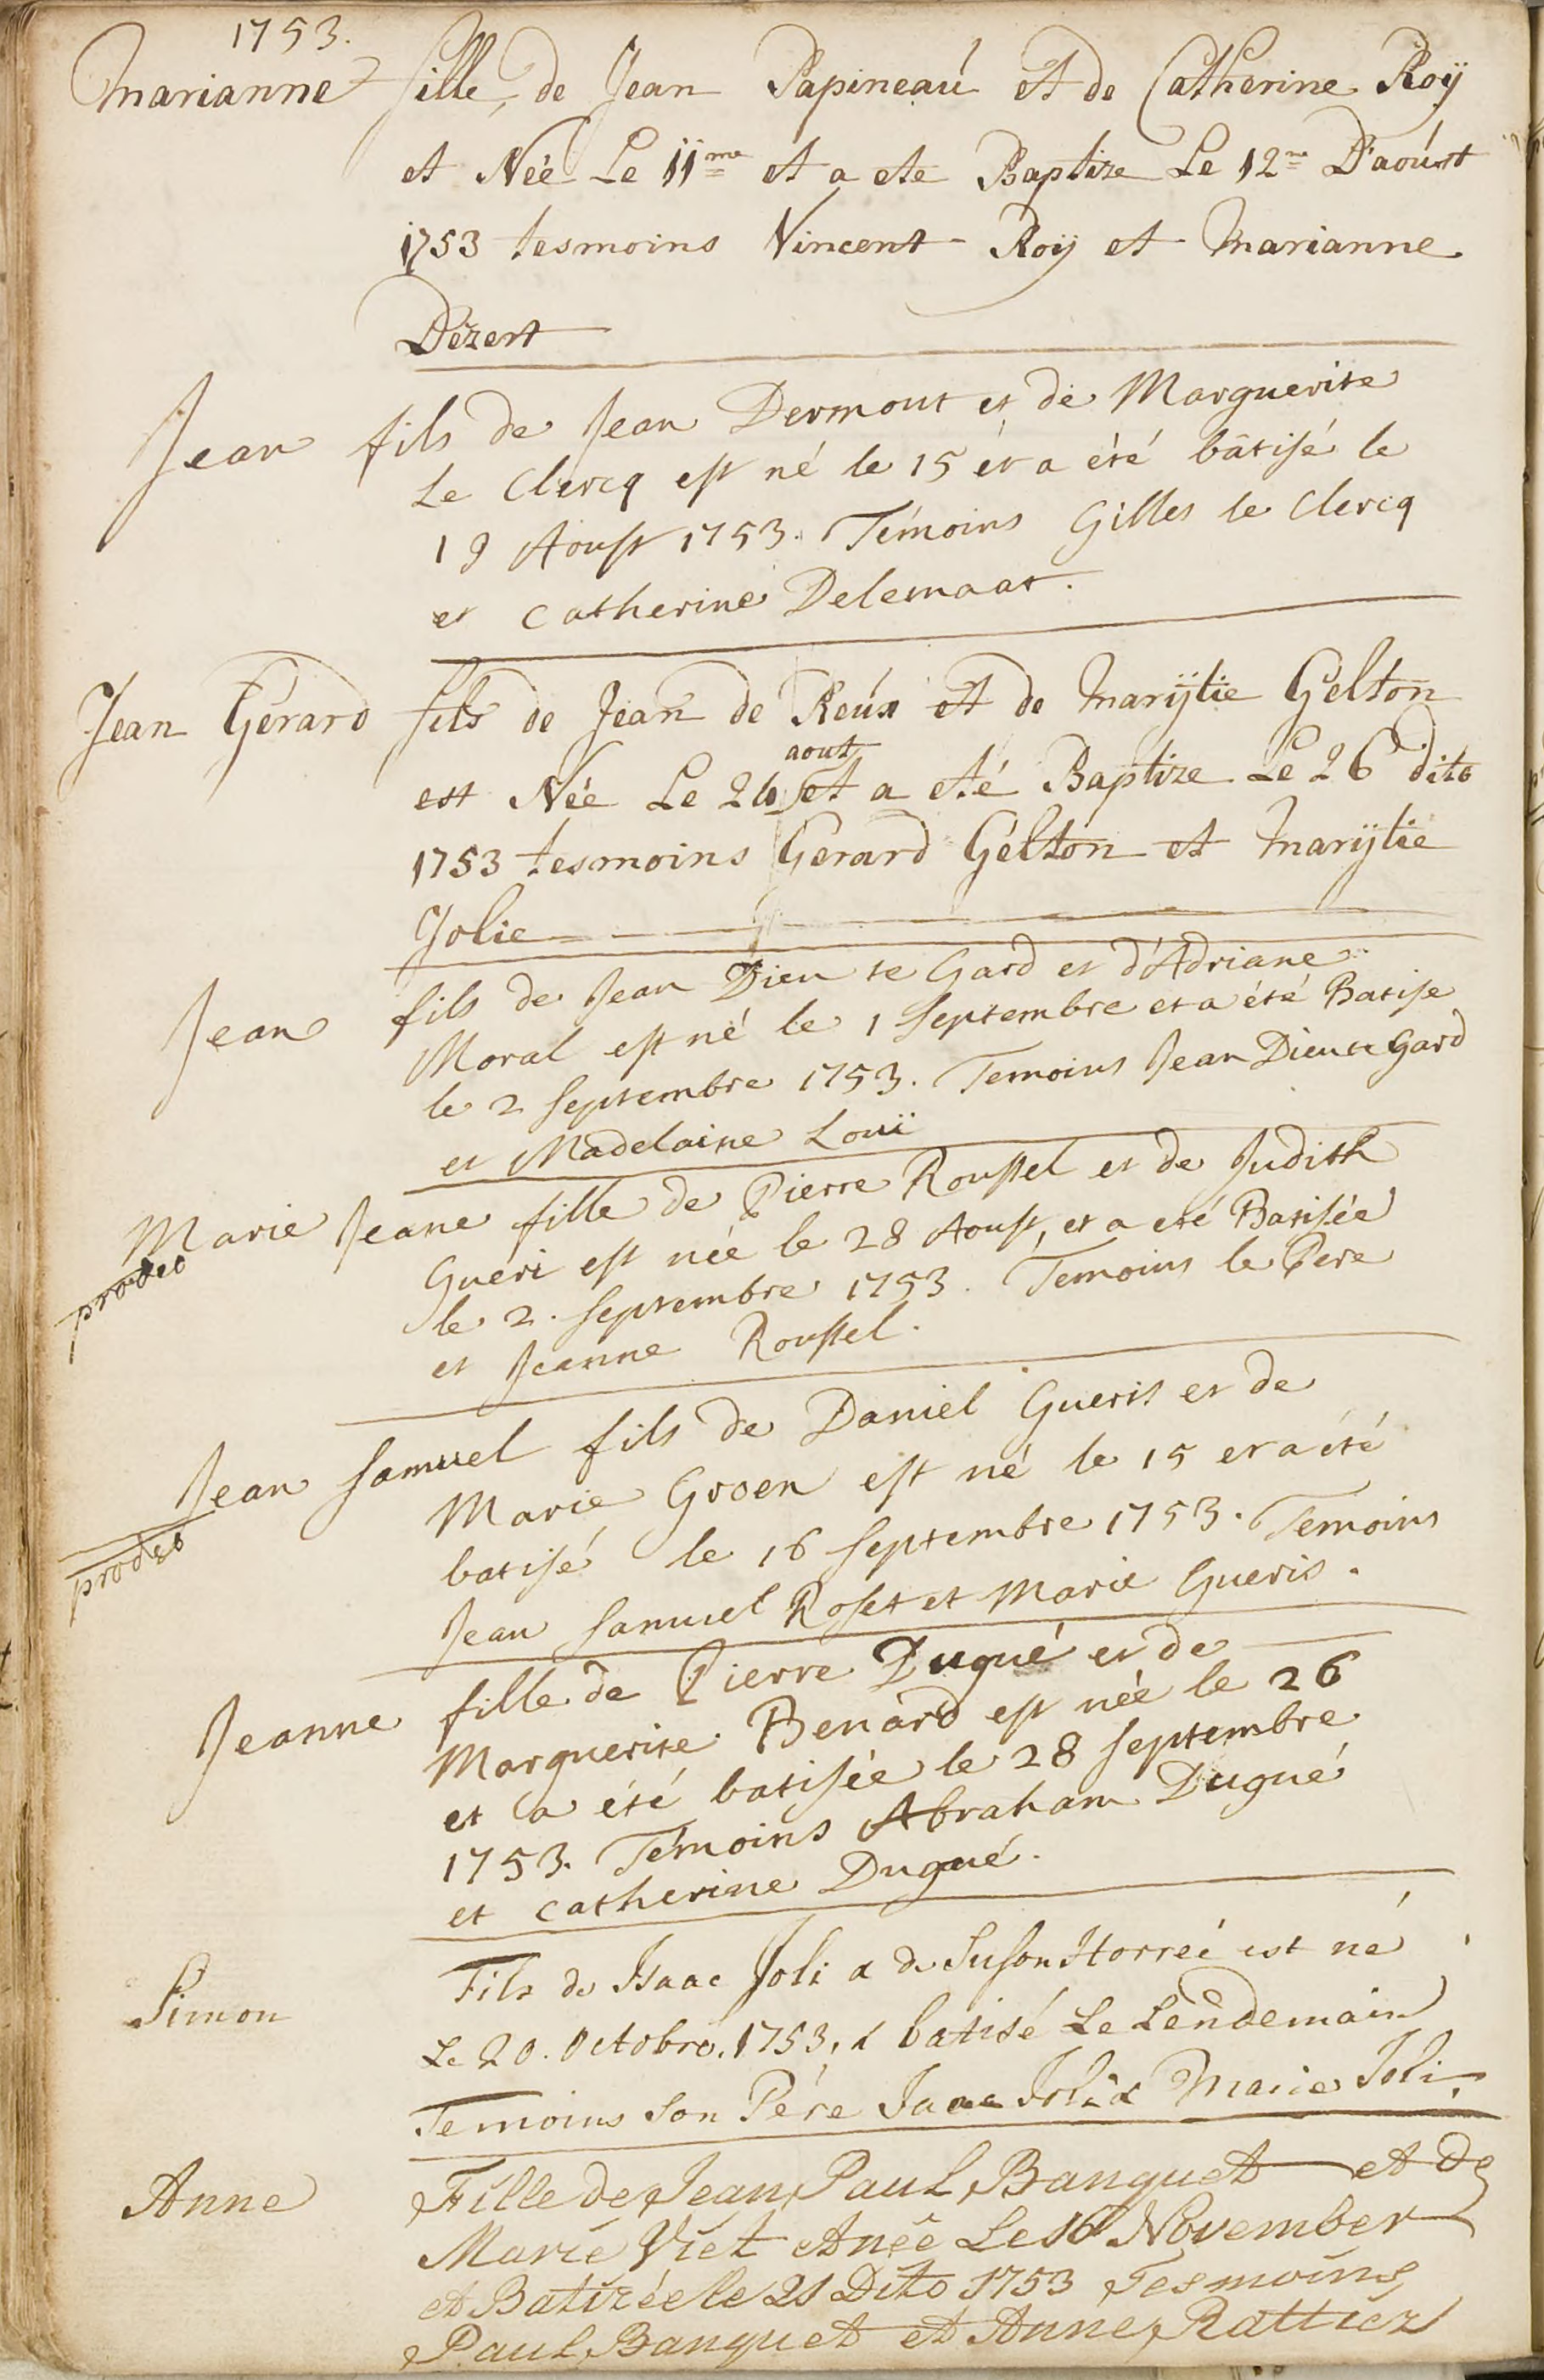 1753.
Marianne fille de Jean Papineaú et de Catherine Roÿ
et Neé Le 11me et a ete Baptize Le 12me D'aoúst
1753 tesmoins Vincent Roÿ et Marianne
Dezert
Jean fils de Jean Dermout et de Marguerite
Le Clercq est né le 15 et a été bâtisé le
19 Aoust 1753. Témoins Gilles le Clercq
et Catherine Delemaat.
Jean Gerard fils de Jean de Reúx et de Marÿtie Gelton
aout
est Née Le 24 et a eté Baptize Le 26 dito
1753 tesmoins Gerard Gelton et Marÿtie
Jolie
Jean fils de Jean Dieu te Gard et d'Adriane
Moral est né le 1 Septembre et a été Batise
le 2 Septembre 1753. Temoins Jean Dieu te Gard
et Madelaine Louï
Marie Jeane fille de Pierre Roussel et de Judith
prodeo
Gueri est née le 28 Aoust, et a eté Batisée
le 2. Septembre 1753. Temoins le Pere
et Jeanne Roussel.
Jean Samuel fils de Daniel Gueris et de
Marie Groen est né le 15 et a été
prodeo
batisé le 16 Septembre 1753. Temoins
Jean Samuel Roset et Marie Gueris.
Jeanne fille de Pierre Dugué et de
Marguerite Benard est née le 26
et a été batisée le 28 septembre
1753. Témoins Abraham Dugué
et Catherine Dugué.
Simon Fils de Isaac Joli & de Suson Horreé est né
Le 20. Octobre. 1753, & batisé Le Lendemain
Temoins Son Pére Isaac Joli & Marie Joli.
Anne Fille de Jean Paul Banquet et de
Marie Viet et neê Le 16 November
et Batizée le 21 Dito 1753 Tesmoins
Paul Banquet et Anne Rattier